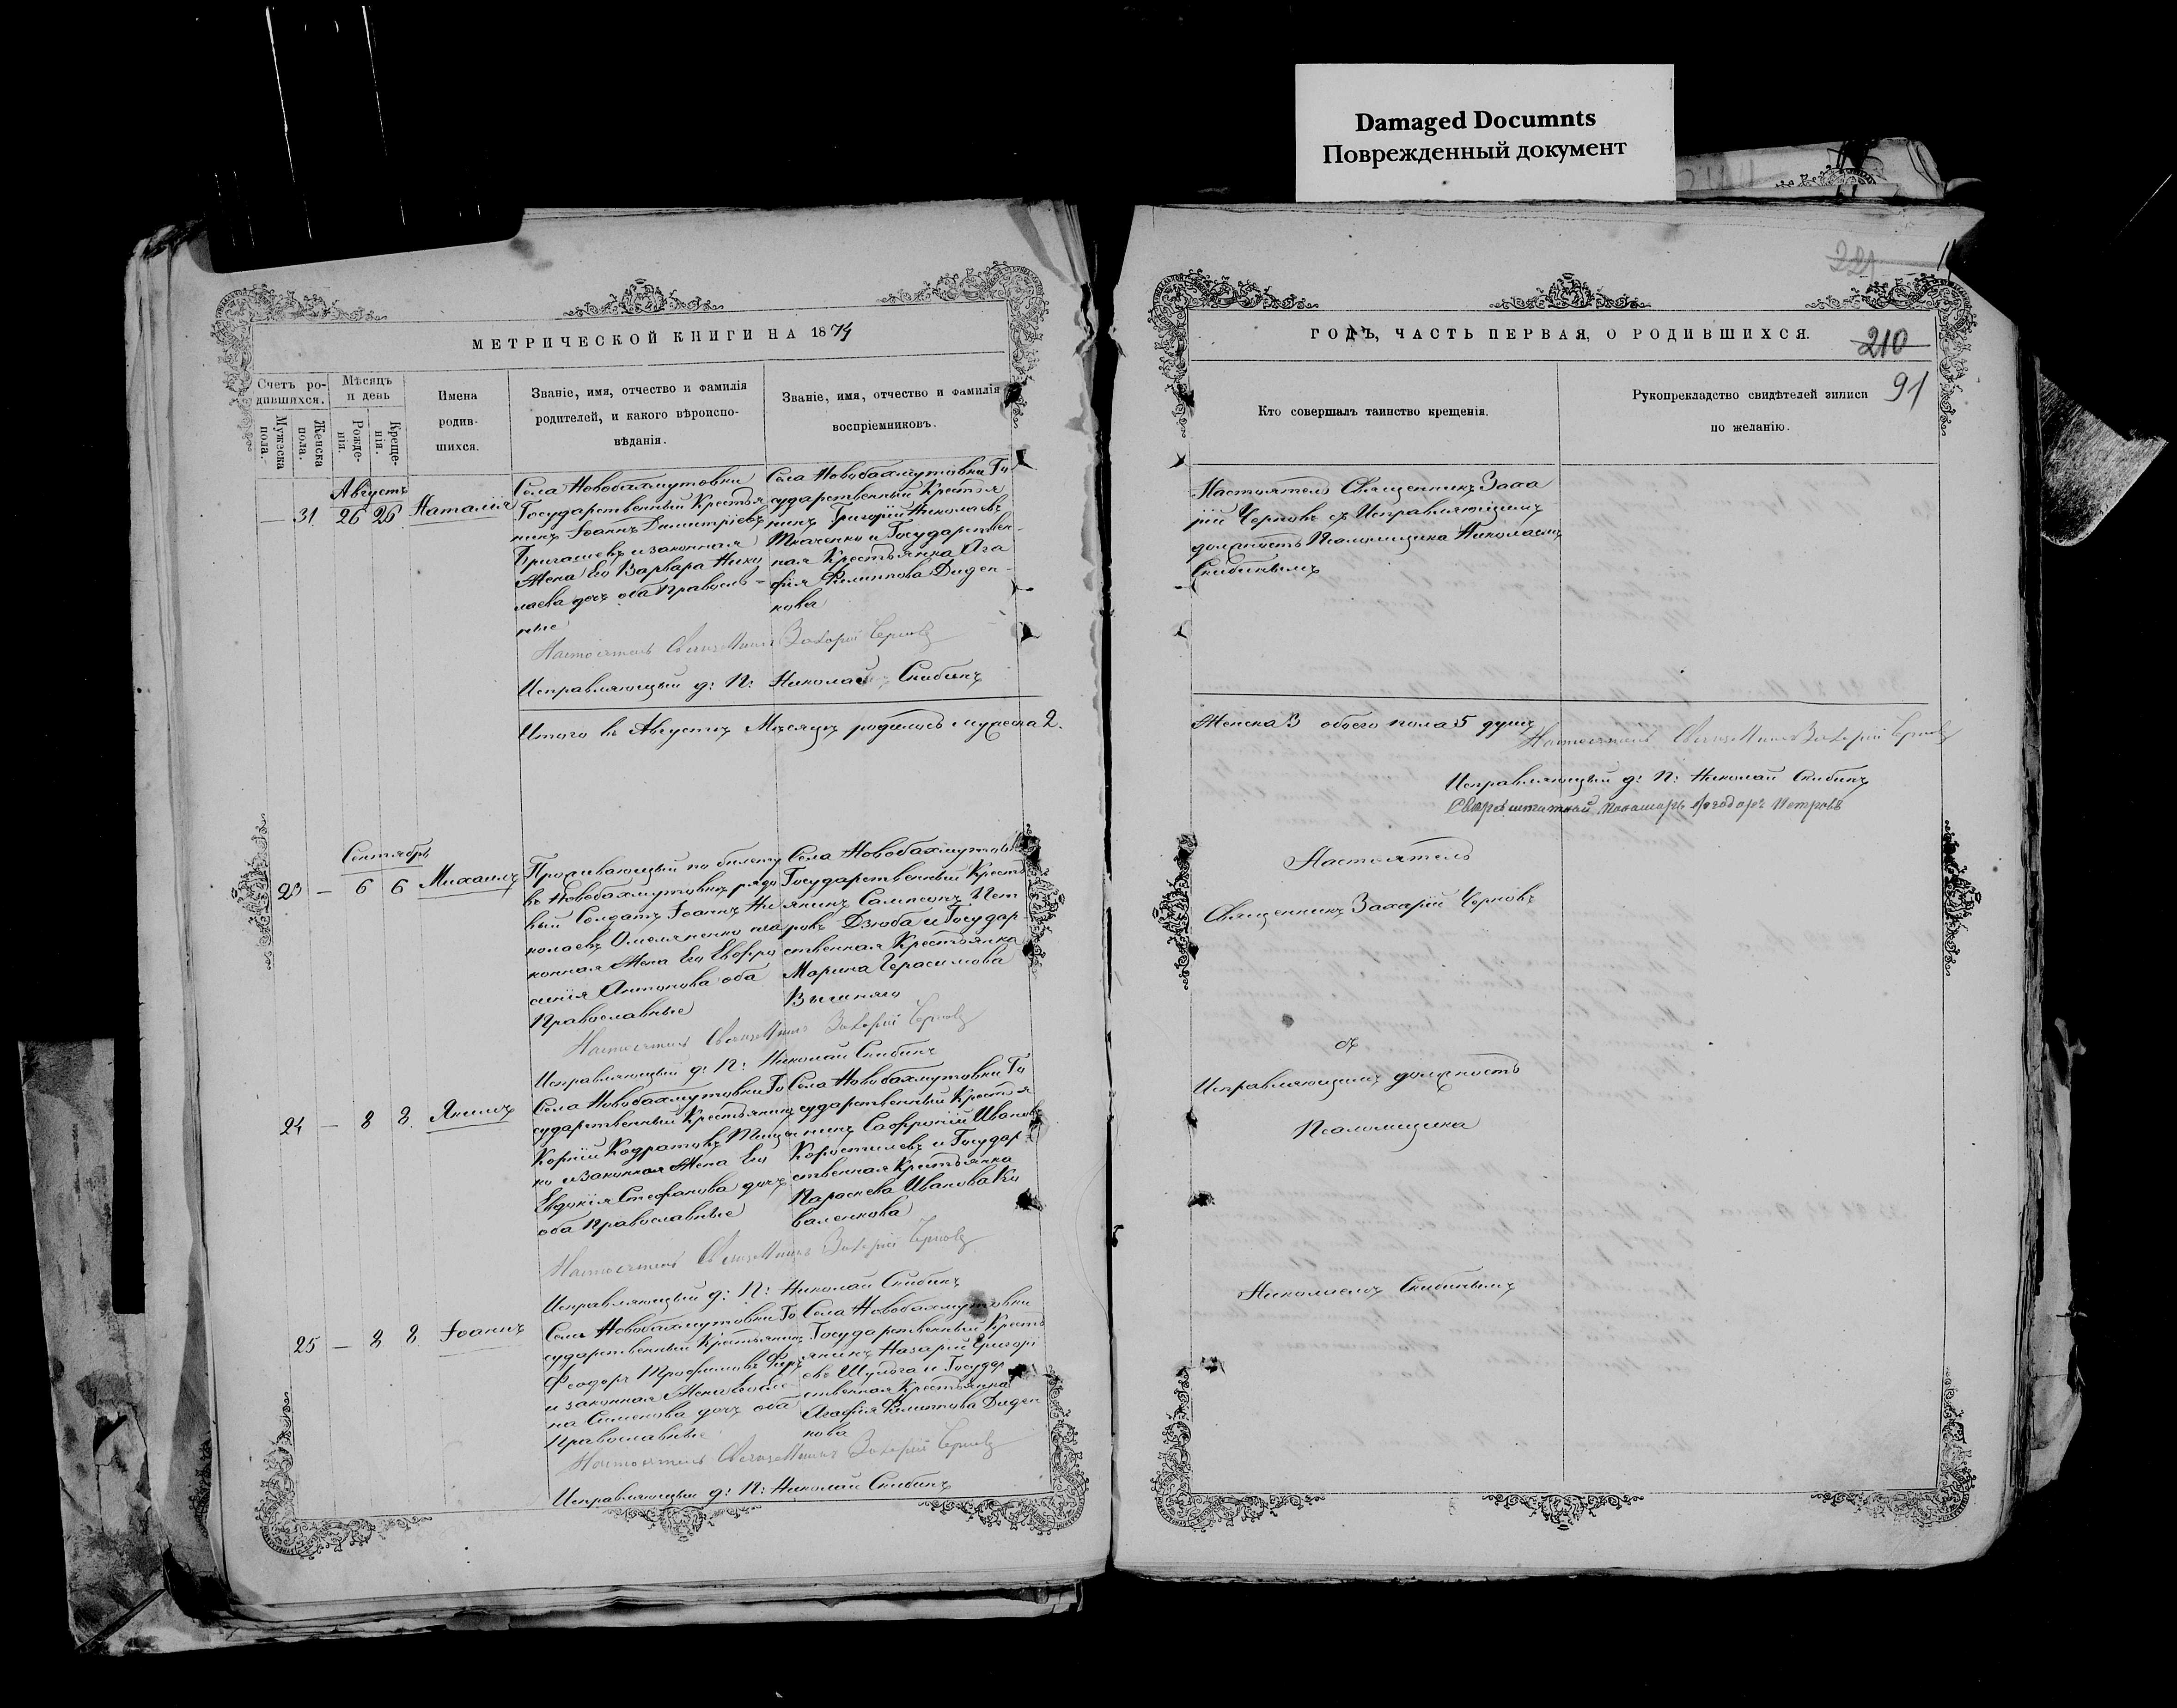 Damaged Documnts
Поврежденный документ
МЕТРИЧЕСКОЙ КНИГИ НА 1874
Счетъ ро-
дившихся.
Мѣсяцъ
и день
Мужеска
пола.
Женска
пола.
Рожде-
нія.
Креще-
нія.
Имена
родив-
шихся.
Званіе, имя, отчество и фамилія
родителей, и какого вѣроиспо-
вѣданія.
Званіе, имя, отчество и фамилія
воспріемниковъ.
Августъ
— 31 26 26 Наталія
Села Новобахмутовки
Государственный Крестья
нинъ Іоаннъ Димитріевъ
и законная
Жена Его Варвара Нико
лаева дочь оба Правосл=
ные
Села Новобахмутовки Го
сударственный Крестья
нинъ Григорій Николаевъ
Ткаченко и Государствен-
ная Крестьянка Ага
фія Филиппова Диден-
кова
Настоятель Священникъ Захарій Черновъ
Исправляющій д: П: Николай Скибинъ
Итого въ Августѣ Мѣсяцѣ родилось мужеска 2.
Сентябрь
23 — 6 6 Михаилъ
Проживающій по билету
въ Новобахмутовкѣ рядо
вый Солдатъ Іоаннъ Ни
колаевъ Омельяненко иза
конная Жена Его Евфро
синія Антонова оба
Православные
Села Новобахмутовки
Государственный Кресть
янинъ Сампсонъ Пет
ровъ Дзюба и Государ
ственная Крестьянка
Марина Герасимова
Вышняго
Настоятель Священникъ Захарій Черновъ
Исправляющій д: П: Николай Скибинъ
24 — 8 8. Якимъ
Села Новобахмутовки Го
сударственный Крестьянинъ
Корній Кодратовъ Тищен
ко и законная Жена Его
Евдокія Стефанова дочь
оба Православные
Села Новобахмутовки Го
сударственный Крестья
нинъ Софроній Ивановъ
Коростилевъ и Государ
ственная Крестьянка
Параскева Иванова Ко
валенкова
Настоятель Священникъ Захарій Черновъ
Исправляющій д: П: Николай Скибинъ
25 — 8 8. Іоаннъ
Села Новобахмутовки Го
сударственный Крестьянинъ
Феодоръ Трофимовъ
и законная Жена
на Симонова дочь оба
Православные
Села Новобахмутовки
Государственный Кресть
янинъ Назарій Григорі
евъ Шульга и Государ
ственная Крестьянка
Агафія Филиппова Диден
кова
Настоятель Священникъ Захарій Черновъ
Исправляющій д: П: Николай Скибинъ
221
ГОДЪ, ЧАСТЬ ПЕРВАЯ, О РОДИВШИХСЯ.
210
91
Кто совершалъ таинство крещенія.
Рукоприкладство свидѣтелей записи
по желанію.
Настоятель Священникъ Заха
рій Черновъ съ Исправляющимъ
должность Псаломщика Николаемъ
Скибинымъ
Женска 3 обоего пола 5 душъ
Настоятель Священникъ Захарій Черновъ
Исправляющій д: П: Николай Скибинъ
Сверхштатный Пономарь Феодоръ Петровъ
Настоятель
Священникъ Захарій Черновъ
съ
Исправляющимъ должность
Псаломщика
Николаемъ Скибинымъ